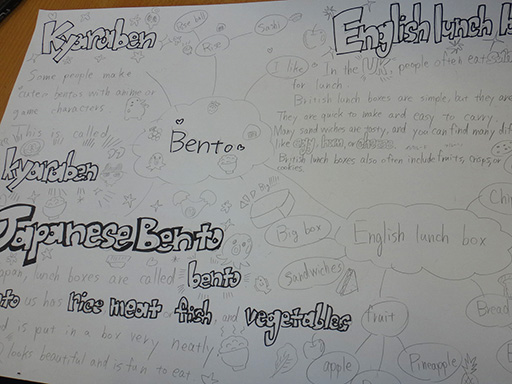 Kyaraben
Some people make
cute bentos with anime or
game characters
This is called
kyaraben
Rice ball
Rice
Sushi
I like
Bento
English lunch b
In the UK, people often eat
for lunch.
British lunch boxes are simple, but they are
They are quick to make and easy to carry.
Many sandwiches are tasty, and you can find many dif
like egg, ham, or
British lunch boxes also often include fruits, crisps, or
cookies.
Japanese Bento
apan, lunch boxes are called bento
nto us has rice meat or fish, and vegetables
d is put in a box very neatly
looks beautiful and is fun to eat
English lunch box
Big box
Sandwiches
fruit
apple
Pineapple
Bread
Chi